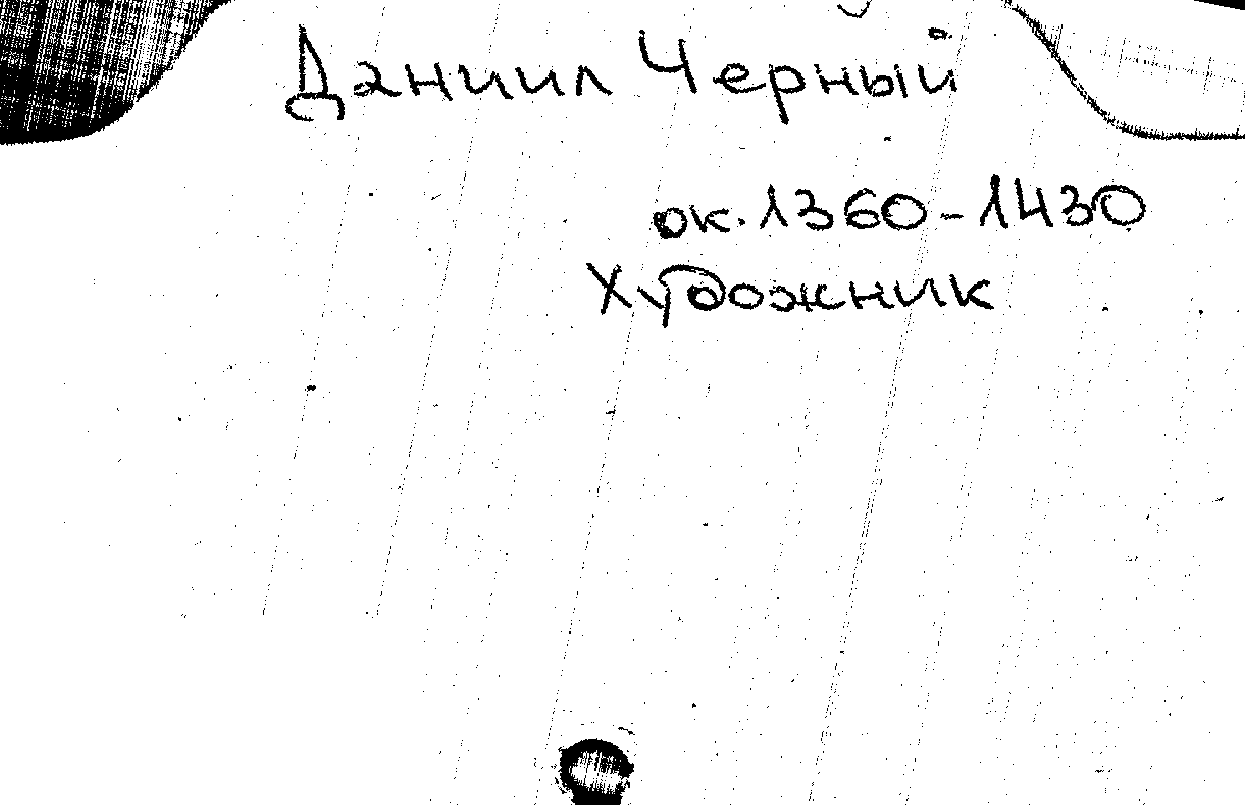 Даниил Черный
ок. 1360-1430
Художник